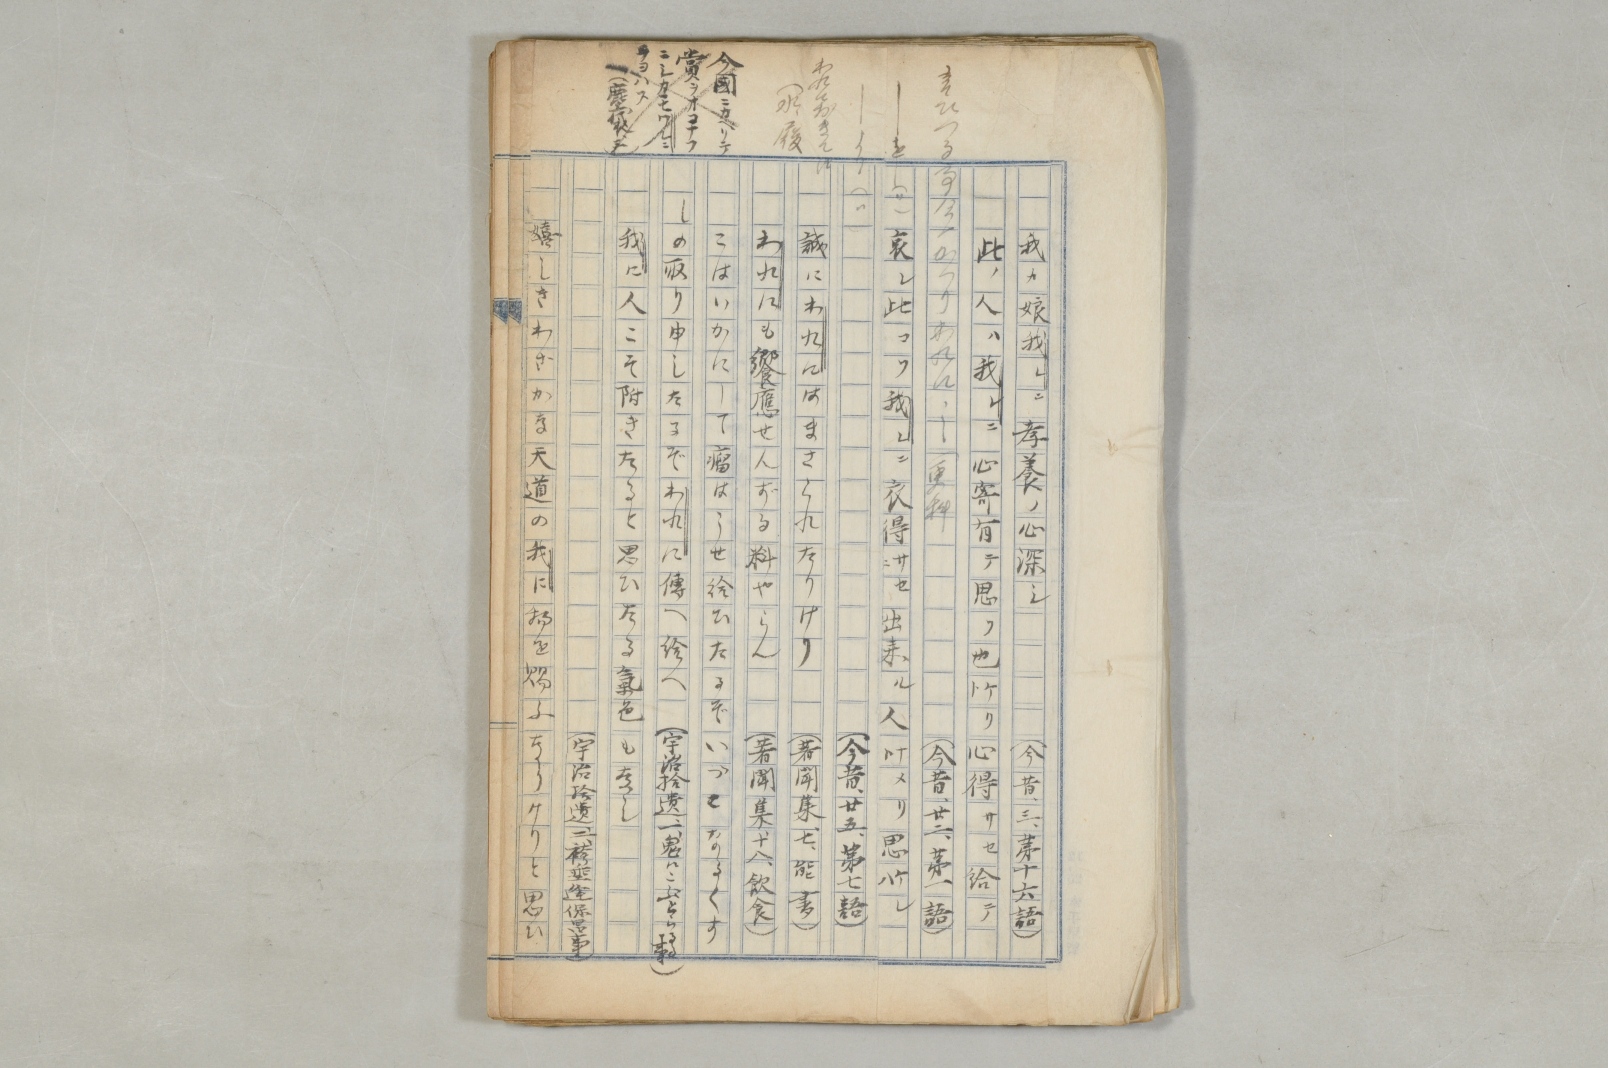 我カ娘我レニ孝養ノ心深シ
(今昔、三、第十六語)
此ノ人ハ我レニ心寄有テ思フ也ケリ心得サセ給テ
(今昔、廿二、第一語)
(更科
哀レ此コソ我レニ衣得サセニ出来ル人ナメリ思ケレ
(今昔、廿五、第七語)
誠にわれにはまさられたりけり
(著聞集、七、能書)
われにも饗應せんずる料やらん
(著聞集、十八、飲食)
こはいかにして瘤はうせ給ひたるぞいづこなるくす
しの取り申したるぞわれに傳へ給へ
(宇治拾遺、一、鬼にこぶとらるゝ事)
我に人こそ附きたると思ひたる氣色もなし
(宇治拾遺、二、袴垂逢保昌事)
嬉しきわざかな天道の我に物を賜ふなりけりと思ひ
今國ニ
賞ヲオコナフ
(塵袋